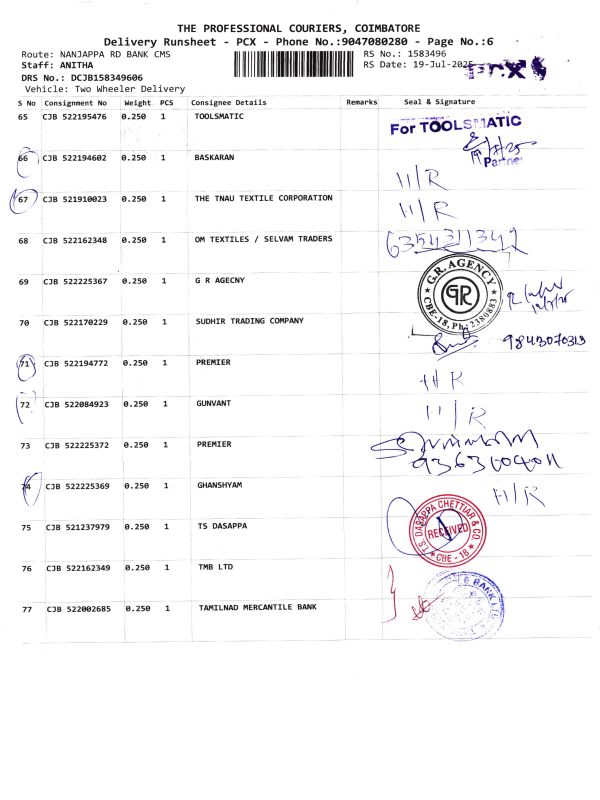 THE PROFESSIONAL COURIERS, COIMBATORE
Delivery Runsheet - PCX - Phone No.:9047080280 - Page No.:6
Route: NANJAPPA RD BANK CMS
RS No.: 1583496
Staff: ANITHA
RS Date: 19-Jul-2025
DRS No.: DCJB158349606
Vehicle: Two Wheeler Delivery
S No Consignment No Weight PCS Consignee Details Remarks Seal & Signature
65 CJB 522195476 0.250 1 TOOLSMATIC
For TOOLSMATIC
Partner
66 CJB 522194602 0.250 1 BASKARAN
H/R
67 CJB 521910023 0.250 1 THE TNAU TEXTILE CORPORATION
H/R
68 CJB 522162348 0.250 1 OM TEXTILES / SELVAM TRADERS
6354311342
69 CJB 522225367 0.250 1 G R AGECNY
G.R. AGENCY
GR
CBE-18, Ph: 2380883
70 CJB 522170229 0.250 1 SUDHIR TRADING COMPANY
9843070313
71 CJB 522194772 0.250 1 PREMIER
H/R
72 CJB 522084923 0.250 1 GUNVANT
H/R
73 CJB 522225372 0.250 1 PREMIER
74 CJB 522225369 0.250 1 GHANSHYAM
H/R
75 CJB 521237979 0.250 1 TS DASAPPA
T.S. DASAPPA CHETTIAR & CO
RECEIVED
CBE - 18
76 CJB 522162349 0.250 1 TMB LTD
77 CJB 522002685 0.250 1 TAMILNAD MERCANTILE BANK